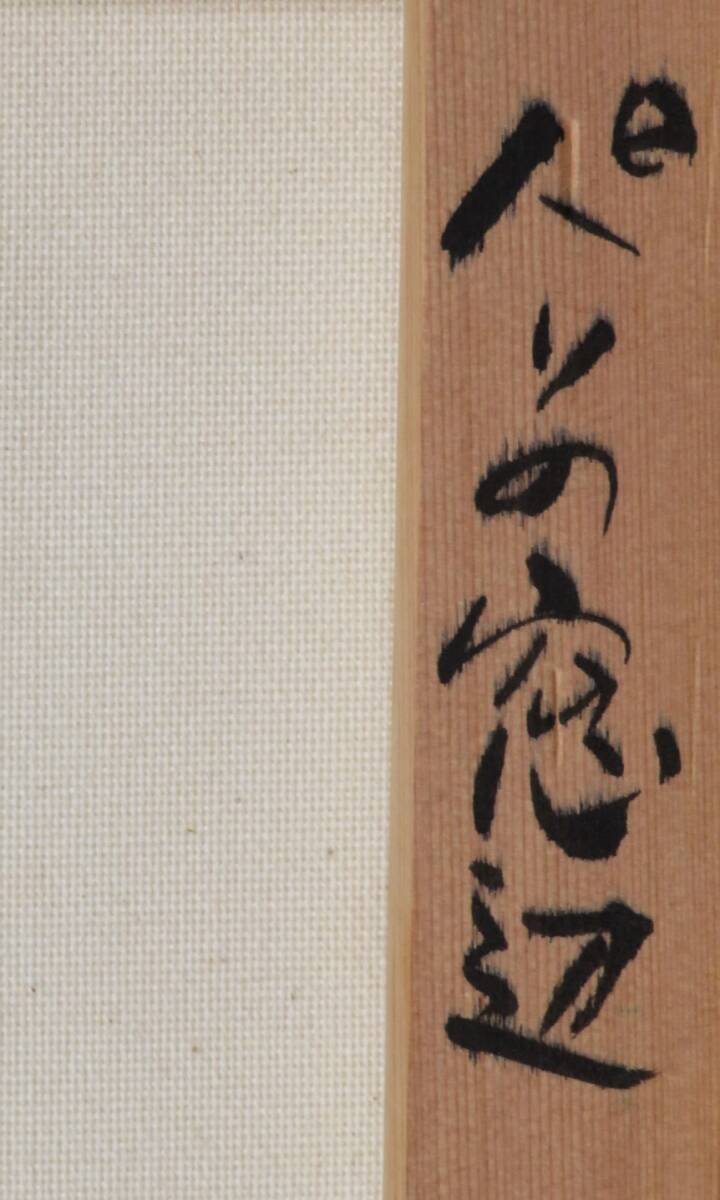 パリの窓辺